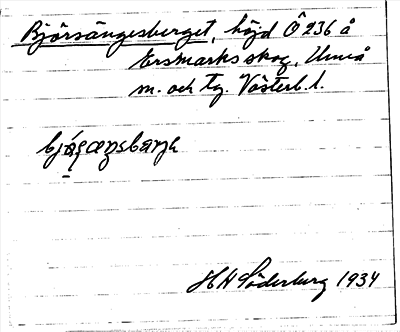 Björsängesberget, höjd Ö 236 å
Ersmarks skog, Umeå
m. och tg. Västerb. l.
H H Söderberg 1934